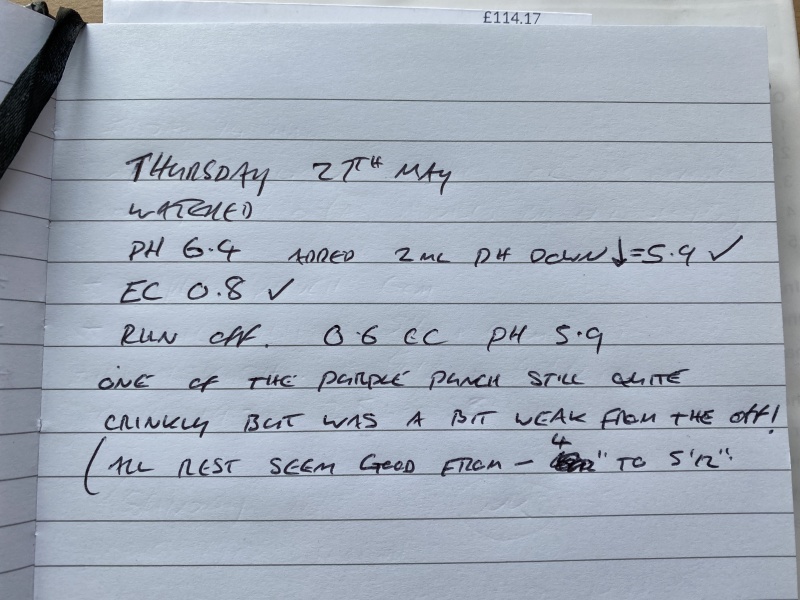 £114.17
THURSDAY 27TH MAY
WATERED
PH 6.4 ADDED 2ML PH DOWN ↓=5.9 ✓
EC 0.8 ✓
RUN OFF. 0.6 EC PH 5.9
ONE OF THE PURPLE PUNCH STILL QUITE
CRINKLY BUT WAS A BIT WEAK FROM THE OFF!
(ALL REST SEEM GOOD FROM - 4" TO 5 1/2".